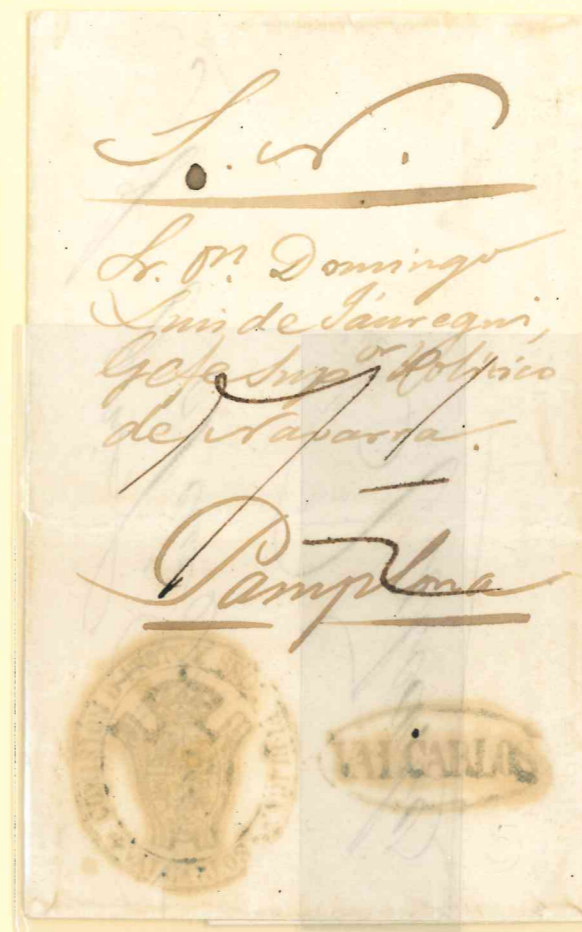 S. N.
Sr. Dn. Domingo
Luis de Jáuregui,
Gefe Supor. Político
de Navarra.
7 1/2
Pamplona
VALCARLOS